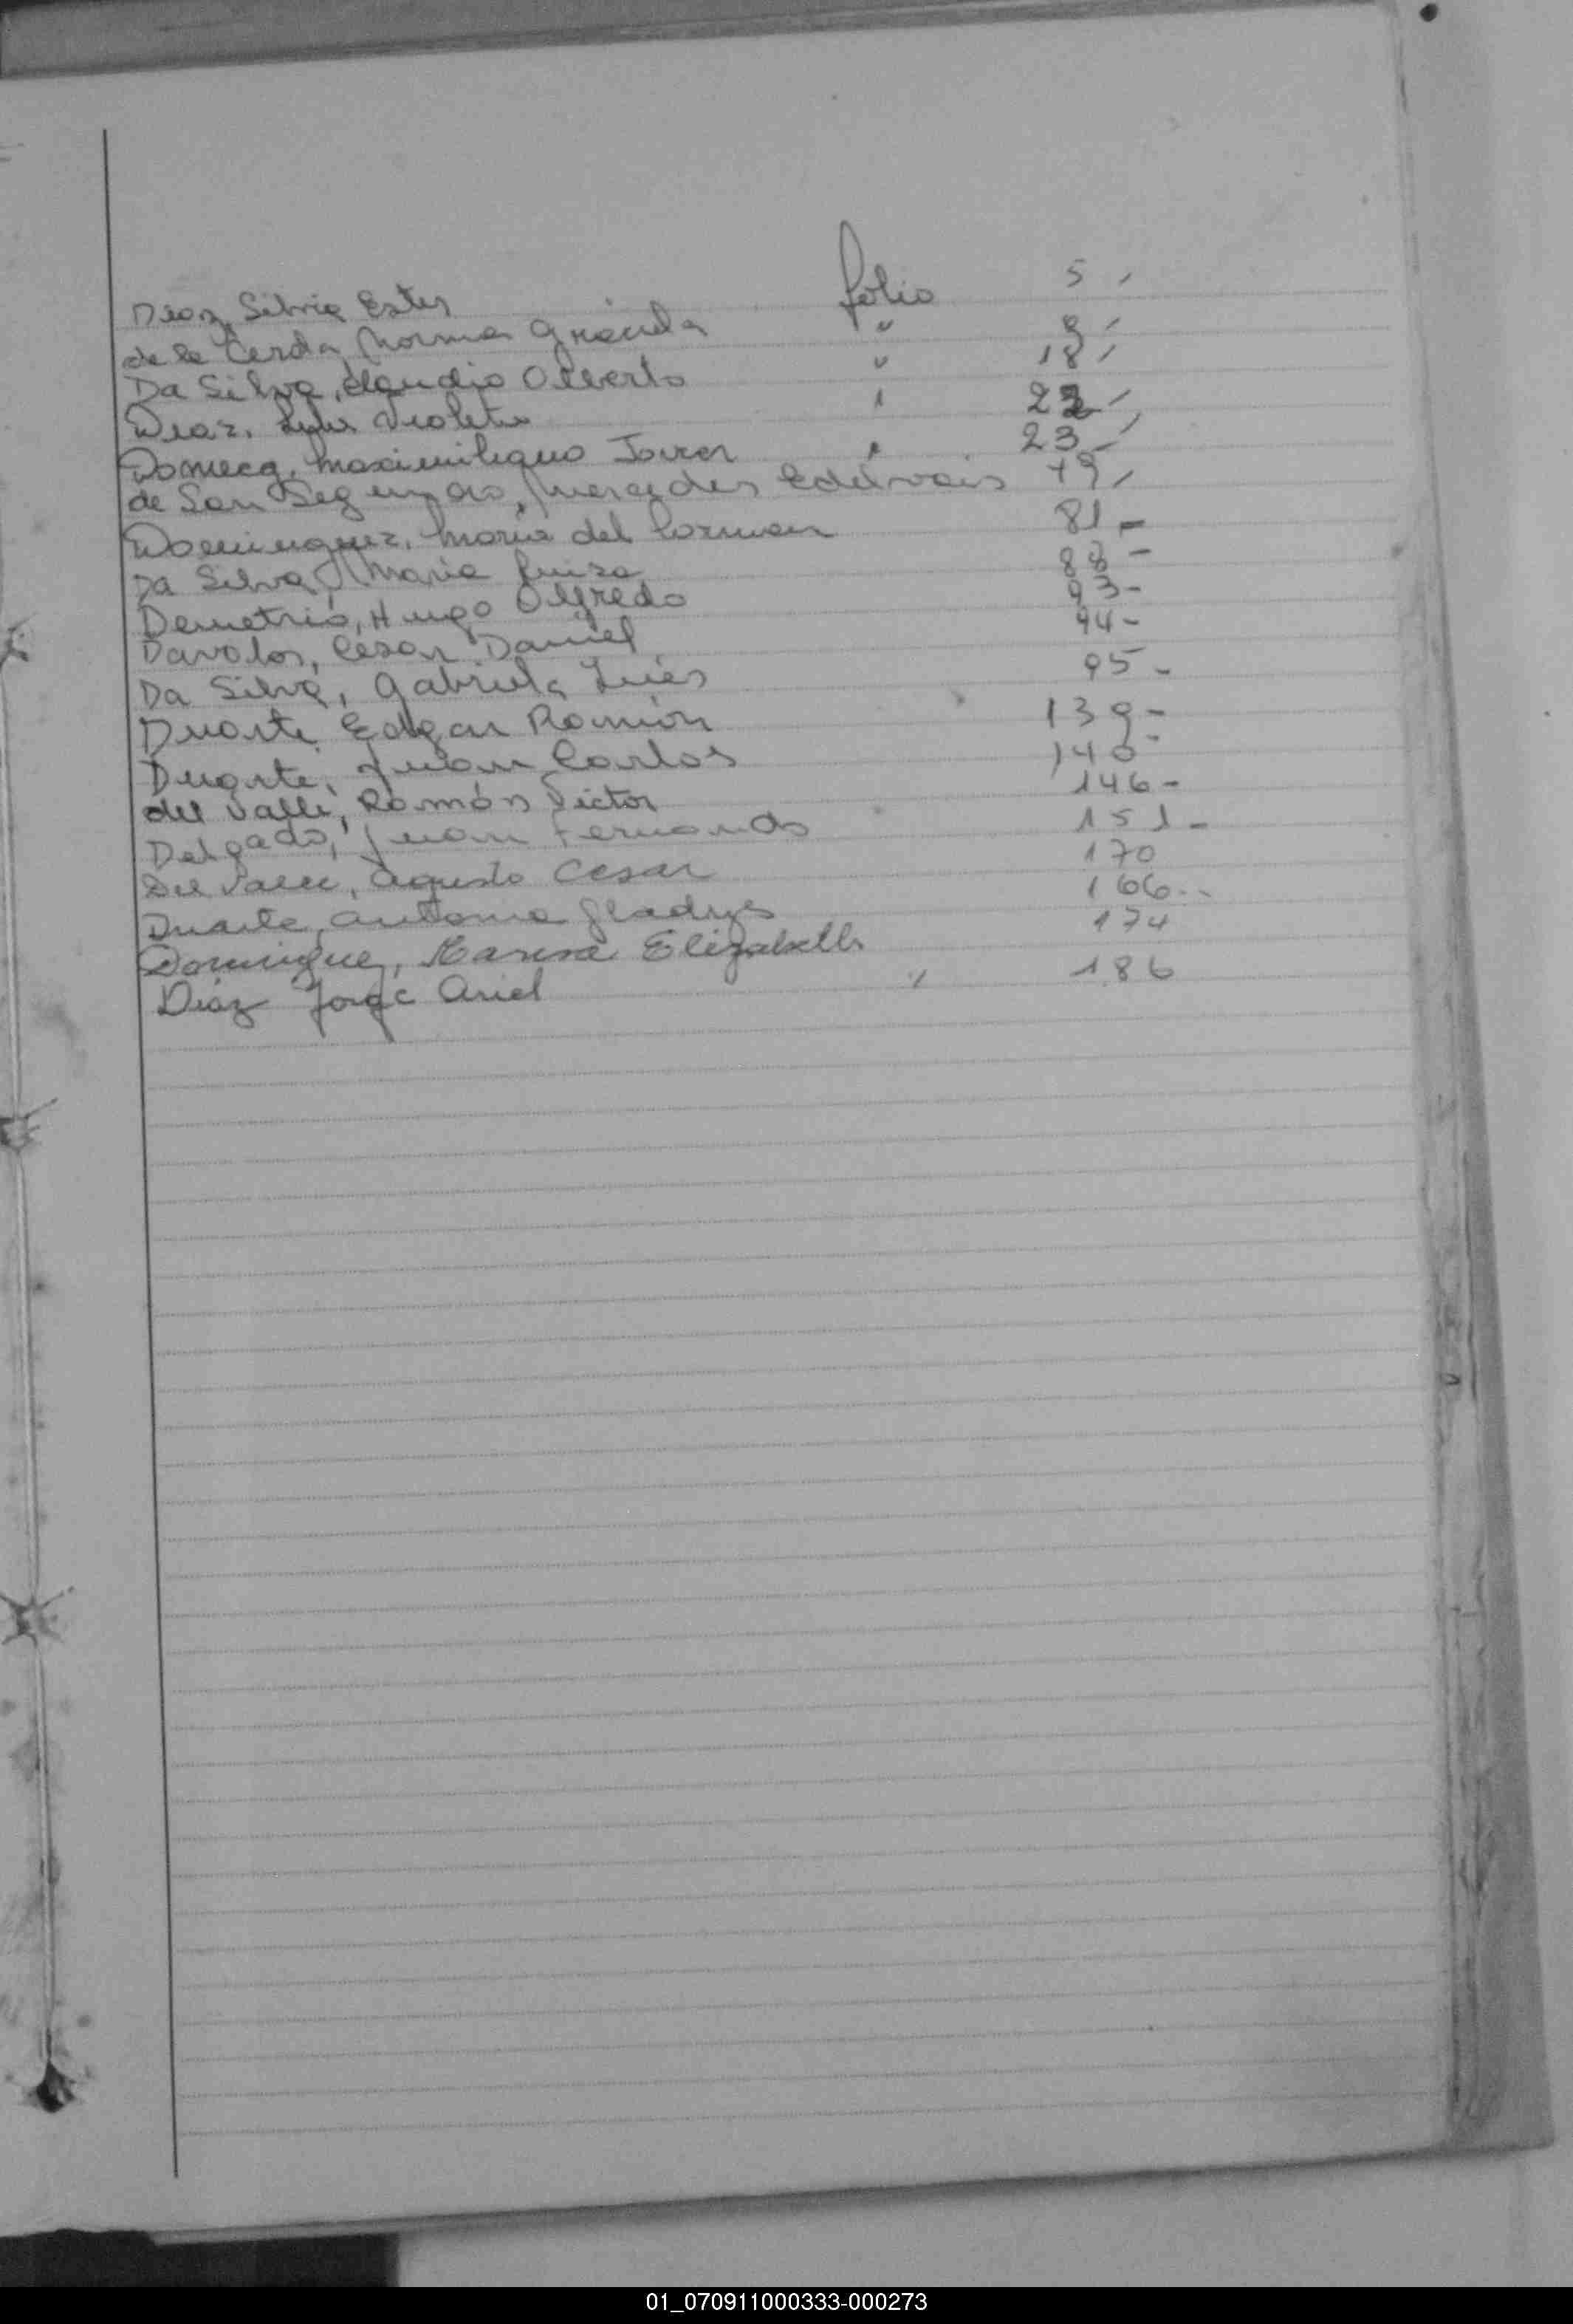 Diaz, Silvia Ester folio 5 -
de la Cerda, Norma Graciela " 8 -
Da Silva, Claudio Alberto " 18 -
Diaz, Violeta " 22 -
Domecq, Maximiliano Javier " 23 -
de San Segundo, Mercedes Edelvais 79 -
Dominguez, María del Carmen 81 -
Da Silva, María Luisa 88 -
Demetrio, Hugo Alfredo 93 -
Davalos, Cesar Daniel 94 -
Da Silva, Gabriela Inés 95 -
Duarte, Edgar Ramón 139 -
Duarte, Juan Carlos 140 -
del Valle, Ramón Victor 146 -
Delgado, Juan Fernando 151 -
Del Valle, Agusto Cesar 170
Duarte, Antonia Gladys 166 -
Dominguez, Marisa Elizabeth 174
Diaz Jorge Ariel " 186
01_070911000333-000273